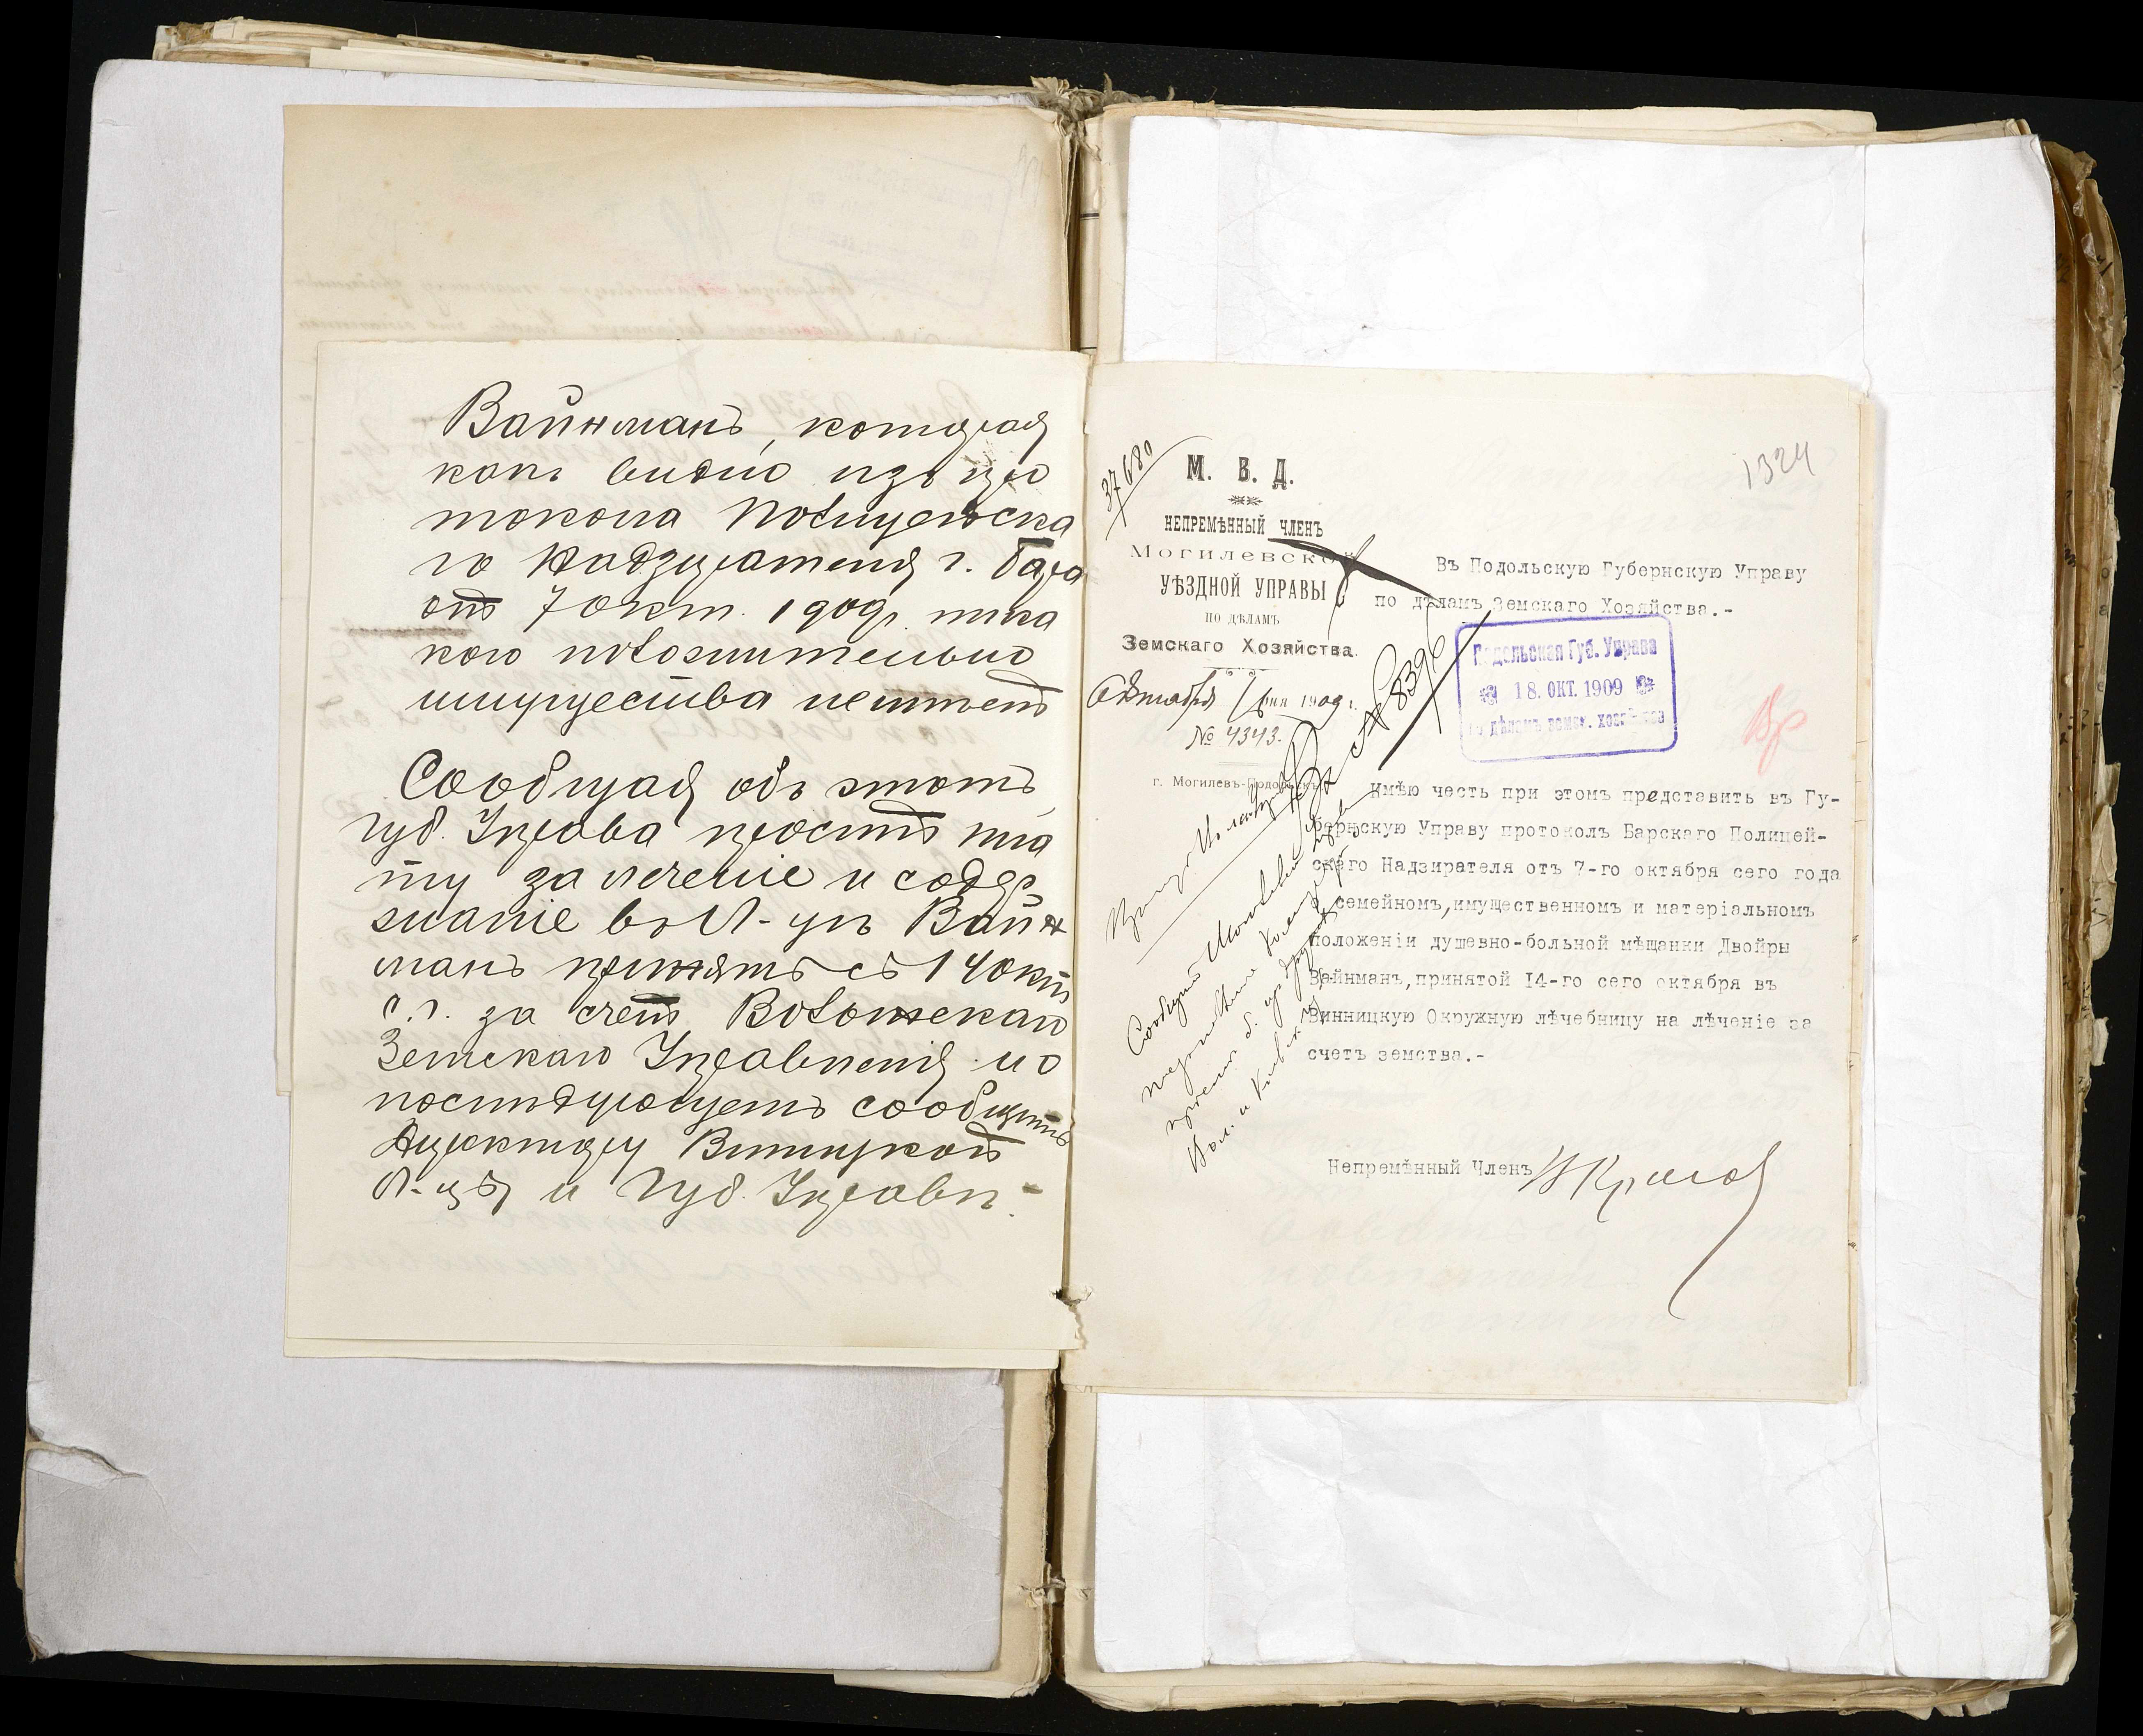 Вайнманъ, которая
какъ видно изъ про
токола Полицейска
го Надзирателя г. Бара
отъ 7 окт. 1909 г. ника
кого положительно
имущества не имѣетъ
Сообщая объ этомъ,
Губ. Управа проситъ пла
ту за леченіе и содер-
жаніе въ Л-цѣ Вайн
манъ принять съ 14 окт
с.г. за счетъ
Земскаго Управленія и о
послѣдующемъ сообщить
Директору Винницкой
Л-цы и Губ. Управл.
1324
37680
М. В. Д.
НЕПРЕМѢННЫЙ ЧЛЕНЪ
Могилевской
УѢЗДНОЙ УПРАВЫ
ПО ДѢЛАМЪ
Земскаго Хозяйства.
Октября 16 дня 1909 г.
№ 4343.
г. Могилевъ-Подольскъ
Въ Подольскую Губернскую Управу
по дѣламъ Земскаго Хозяйства.-
Подольская Губ. Управа
18. ОКТ. 1909
по дѣламъ земск. хозяйства
Вр
№ 8396
Имѣю честь при этомъ представить въ Гу-
бернскую Управу протоколъ Барскаго Полицей-
скаго Надзирателя отъ 7-го октября сего года
семейномъ,имущественномъ и матеріальномъ
положеніи душевно-больной мѣщанки Двойры
Вайнманъ,принятой 14-го сего октября въ
Винницкую Окружную лѣчебницу на лѣченіе за
счетъ земства.-
Непремѣнный Членъ